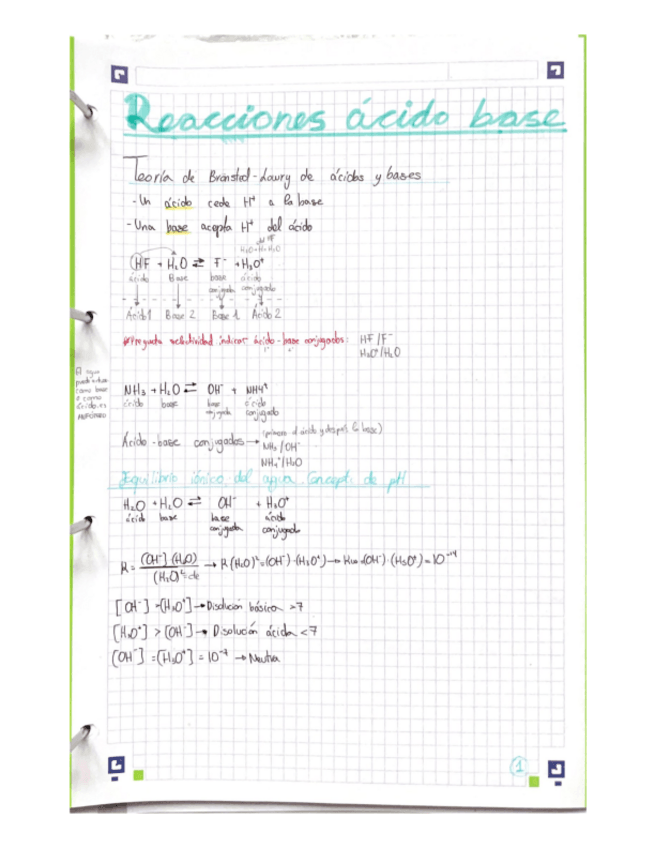 Reacciones ácido base
Teoría de Brönsted-Lowry de ácidos y bases
-Un ácido cede H⁺ a la base
-Una base acepta H⁺ del ácido
HF + H₂O ⇄ F⁻ + H₃O⁺
ácido Base base ácido
conjugada conjugado
Ácido1 Base 2 Base 1 Ácido 2
Pregunta selectividad indicar ácido-base conjugados: HF/F⁻
H₃O⁺/H₂O
El agua
puede actuar
como base
o como
ácido, es
ANFÓTERO
NH₃ + H₂O ⇄ OH⁻ + NH4⁺
ácido base base ácido
conjugada conjugado
Ácido-base conjugados → (primero el ácido y después la base)
NH₃/OH⁻
NH₄⁺/H₂O
Equilibrio iónico del agua. Concepto de pH
H₂O + H₂O ⇄ OH⁻ + H₃O⁺
ácido base base ácido
conjugada conjugado
K = (OH⁻)(H₃O) / (H₂O)² = cte → K(H₂O)² = (OH⁻)·(H₃O⁺) → Kw = (OH⁻)·(H₃O⁺) = 10⁻¹⁴
[OH⁻] > [H₃O⁺] → Disolución básica >7
[H₃O⁺] > [OH⁻] → Disolución ácida <7
[OH⁻] = [H₃O⁺] = 10⁻⁷ → Neutra
1